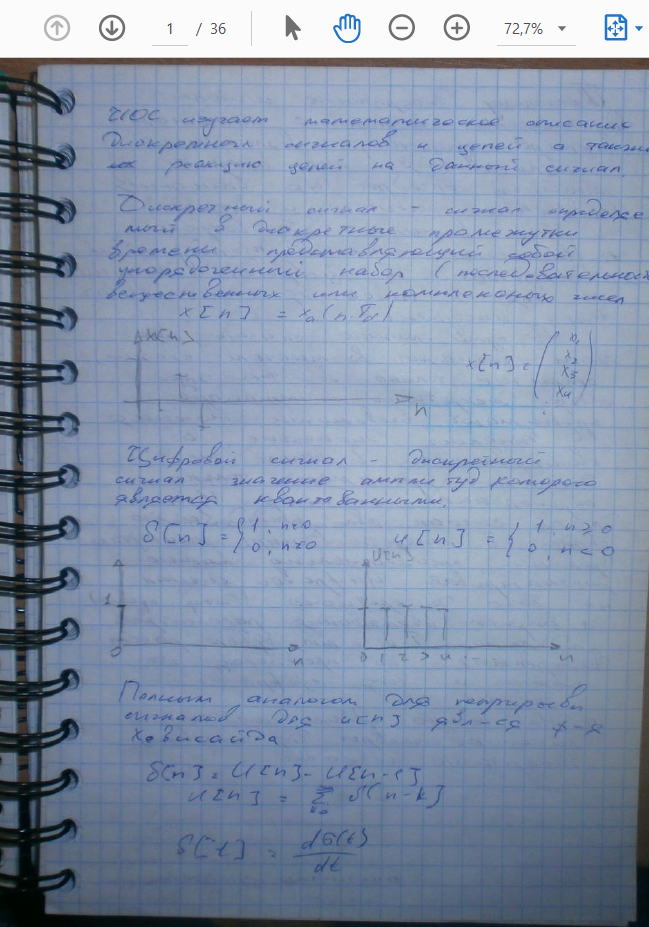 1 / 36
72,7%
ЦОС изучает математическое описание
дискретного сигналов и цепей а также
реакцию цепей на данный сигнал.
Дискретный сигнал - сигнал определе
мый в дискретные промежутки
времени представляющий собой
упорядоченный набор (последовательност
вещественных или комплексных чисел
x[n] = xa(n·Tд)
x[n]
n
x[n] = (x1 x2 x3 x4
Цифровой сигнал - дискретный
сигнал значение амплитуд которого
является квантованными.
δ[n] = {1, n=0 0, n≠0
u[n] = {1, n≥0 0, n<0
U[n]
1
0
n
0 1 2 3 4 ... n
Полным аналогом для непрерывн
сигналов для u[n] явл-ся ф-я
Хевисайда
δ[n] = U[n] - U[n-1]
u[n] = Σ δ[n-k]
k=0
δ[t] = dб(t)/dt